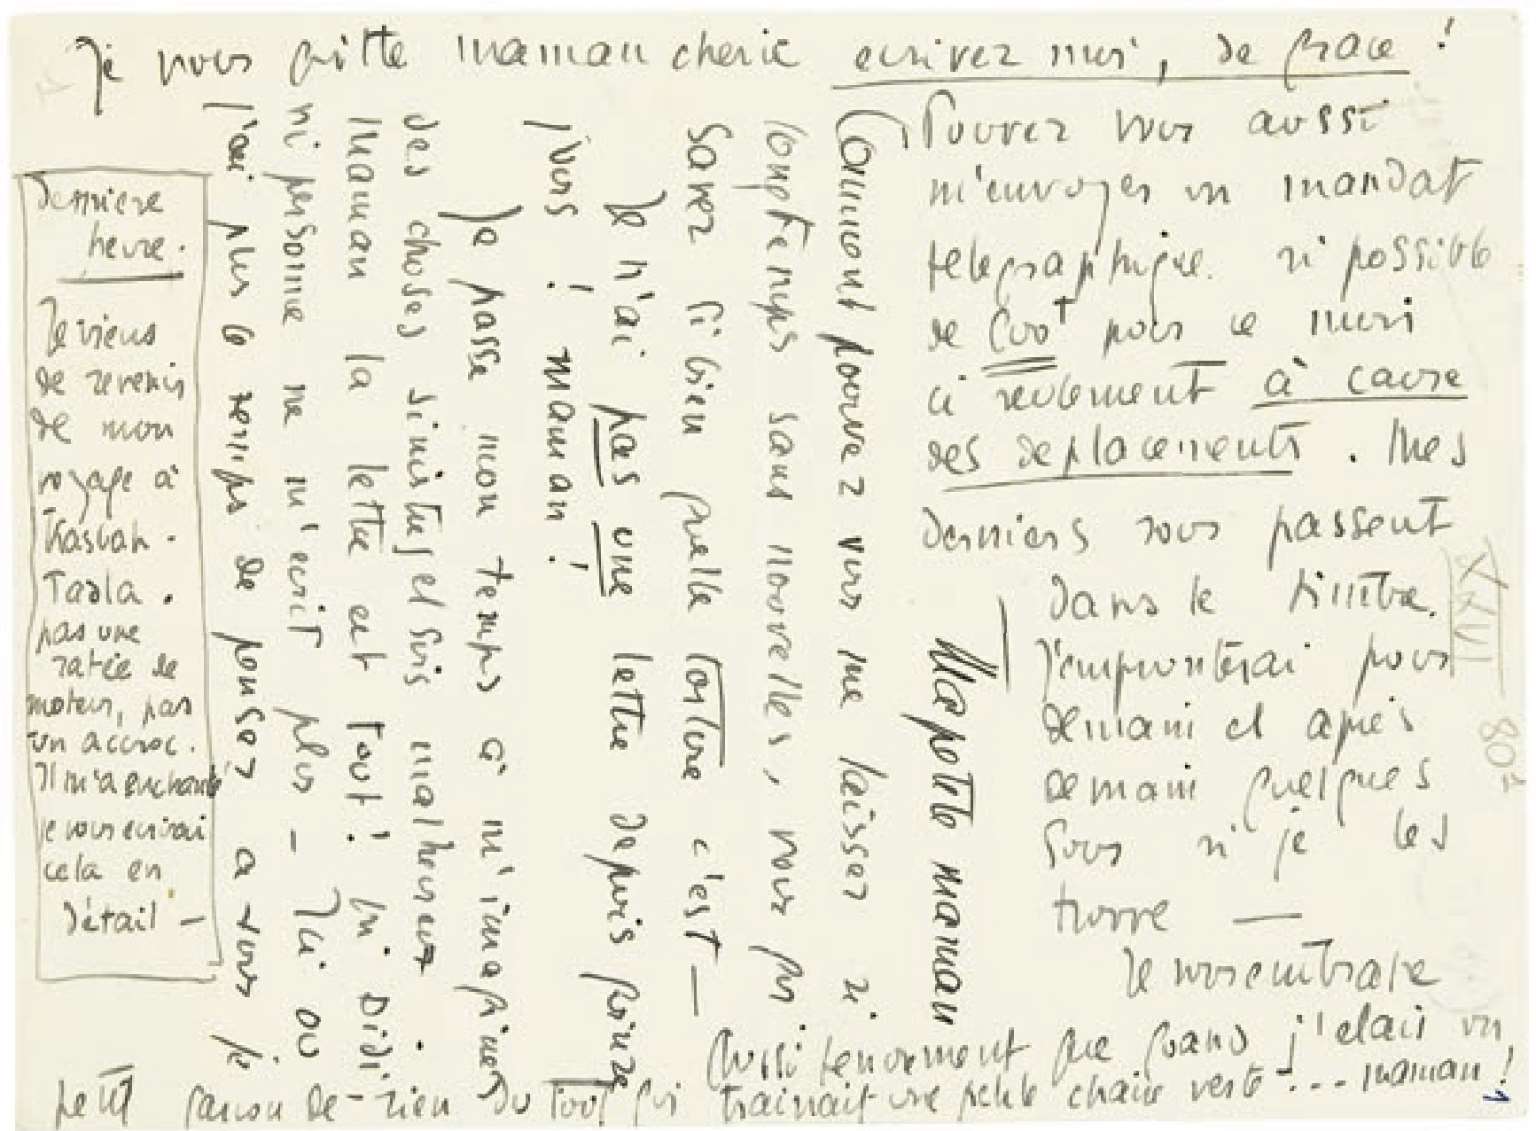 Ma petite maman
Comment pouvez vous me laisser si
longtemps sans nouvelles, vous qui
savez si bien quelle torture c'est —
Je n'ai pas une lettre depuis quinze
jours ! maman !
Je passe mon temps à m'imaginer
des choses sinistres et suis malheureux.
Maman la lettre est tout ! ni Didi
ni personne ne m'ecrit plus – Ici ou
j'ai plus le temps de penser a vous je
Je vous quitte maman cherie ecrivez moi, de grace !
Pouvez vous aussi
m'envoyer un mandat
telegraphique. si possible
de 600f pour ce mois
ci seulement à cause
des deplacements. Mes
derniers sous passent
dans le timbre.
J'emprunterai pour
demain et après
demain quelques
sous si je les
trouve —
Je vous embrasse
aussi tendrement que quand j'etais un
petit garçon de-rien du tout qui trainait une petite chaise verte ... maman !
Derniere
heure.
Je viens
de revenir
de mon
voyage à
Kasbah-
Tadla.
pas une
ratée de
moteur, pas
un accroc.
Il m'a enchanté
je vous ecrirai
cela en
détail —
XXVII
80
1